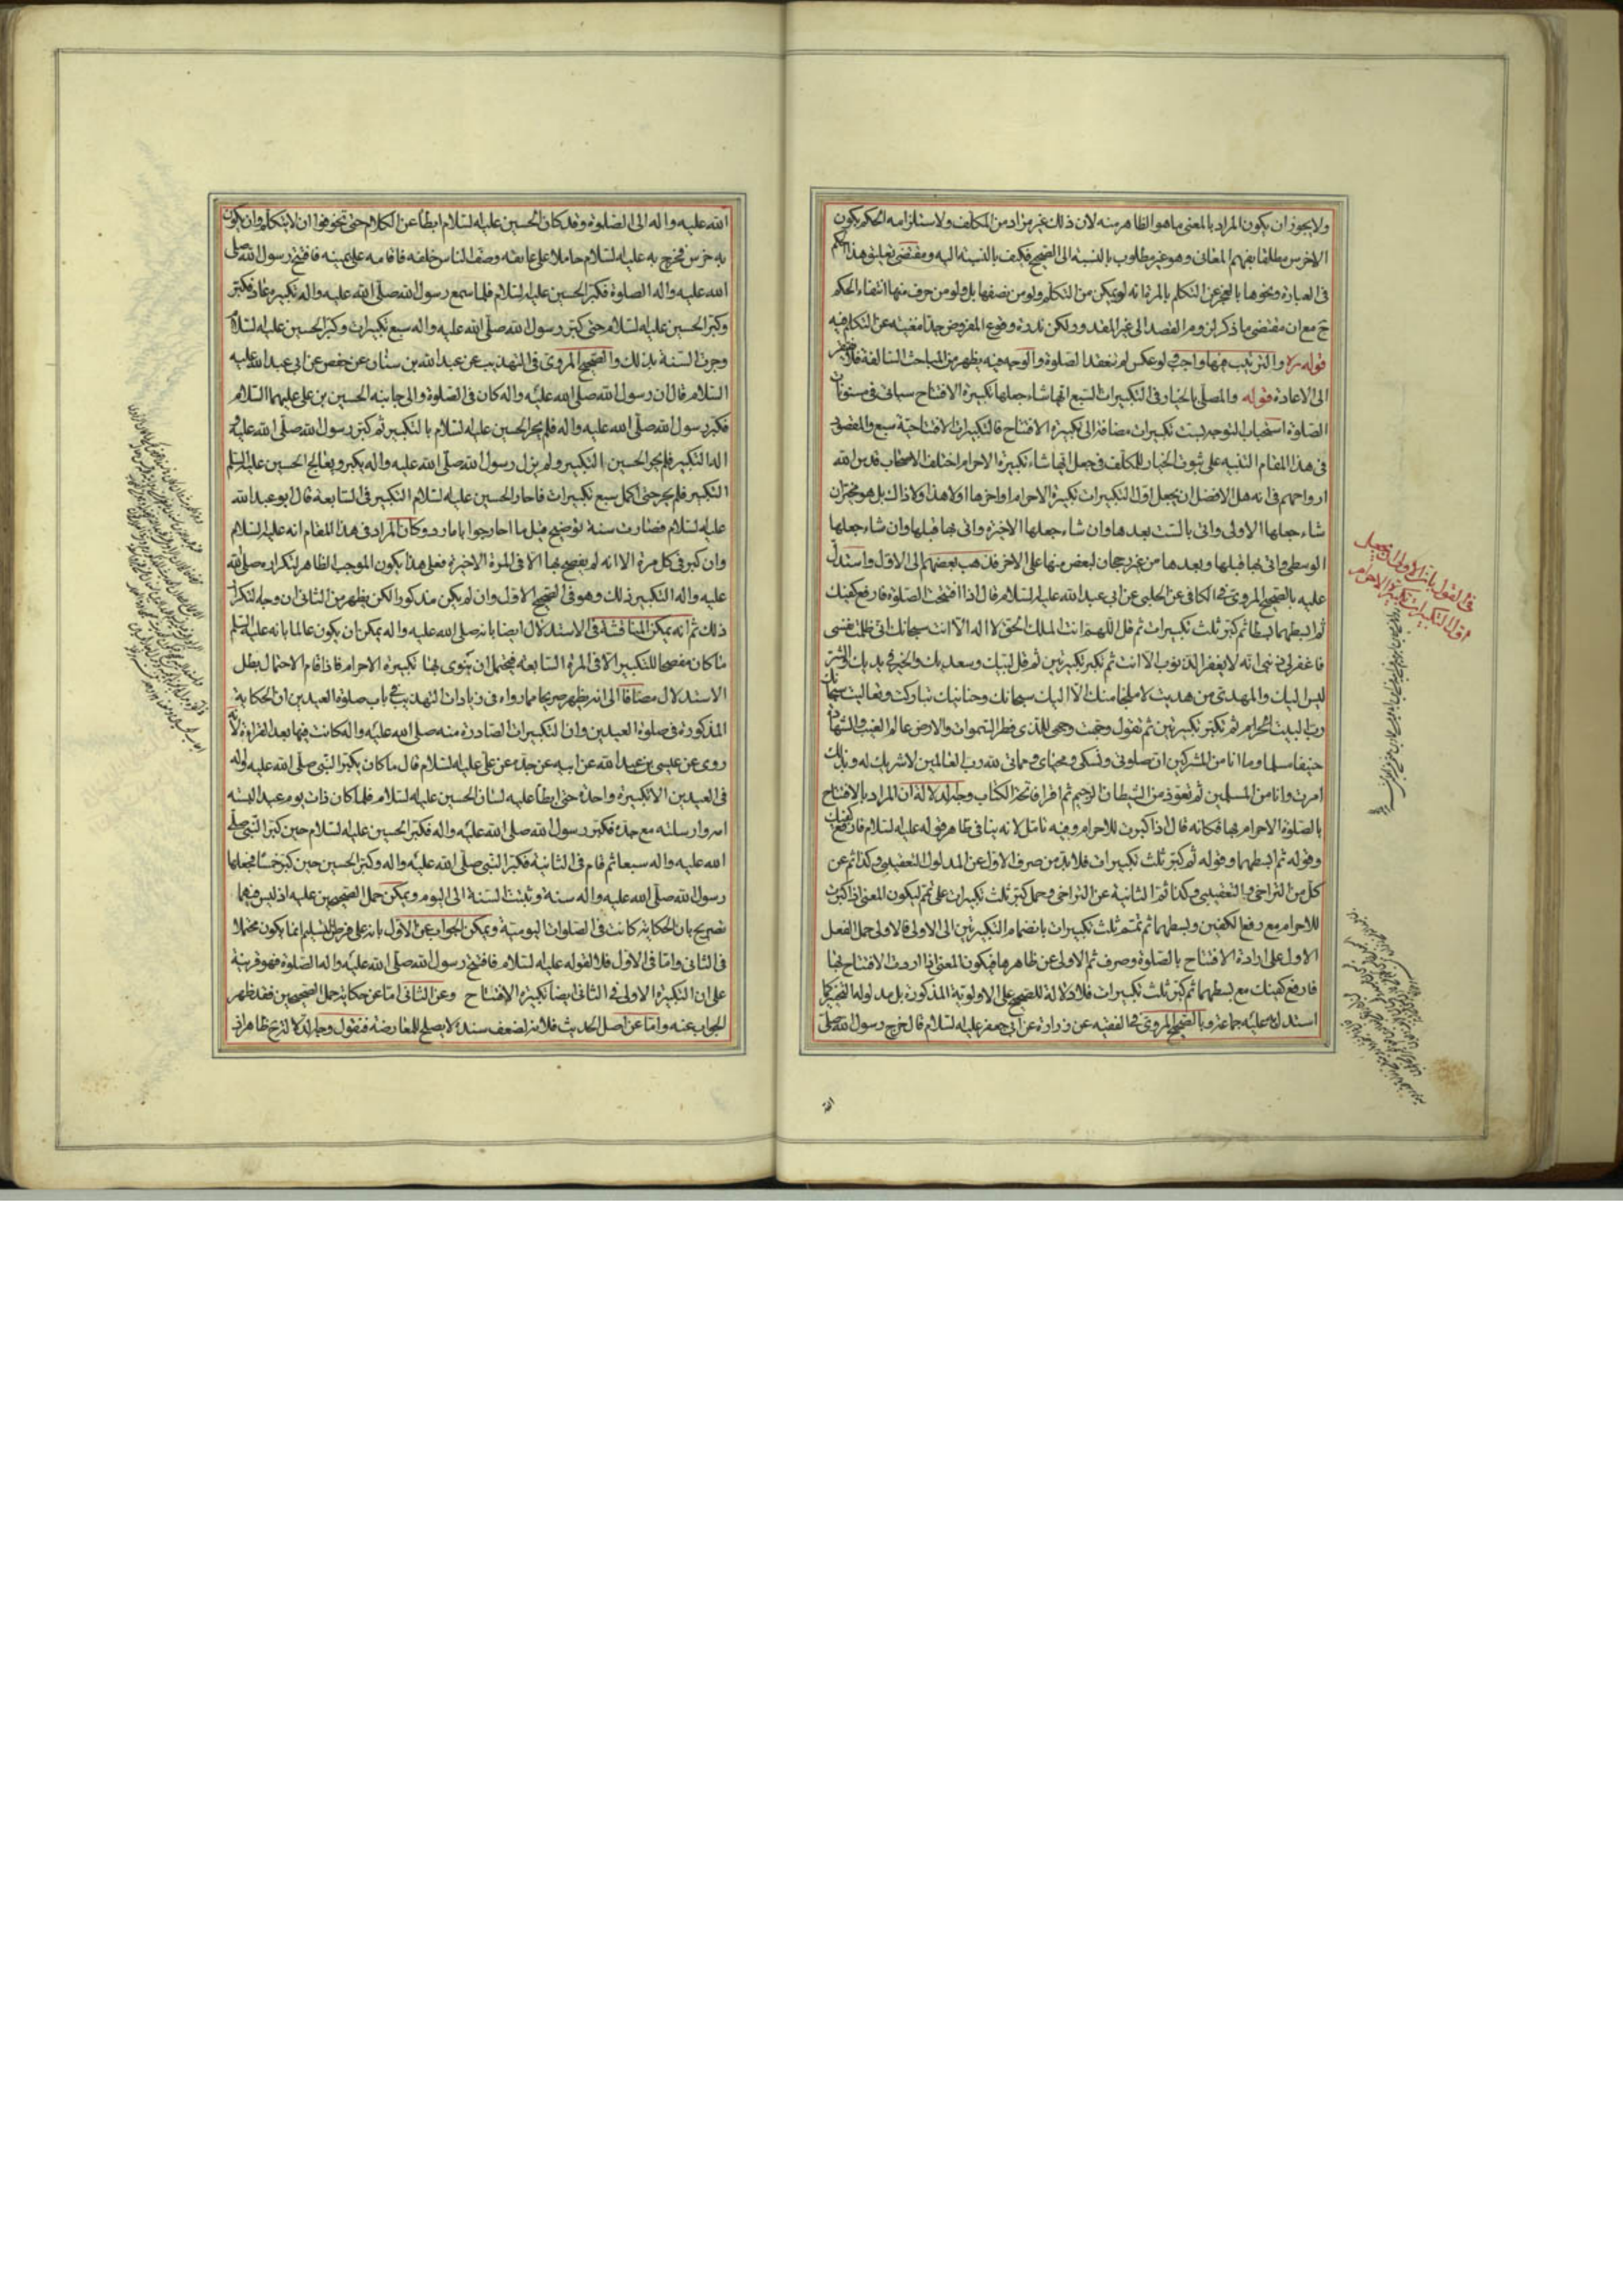 ولا يجوز ان يكون المراد بالمعنى ما هو الظاهر منه لان ذلك غير مراد من المكلف ولاستلزامه الحكم بكون
الاخرس مطلقا بفهم المعانى وهو غير مطلوب بالنسبة الى الصحيح فكيف بالنسبة اليه ومقتضى تعليق هذا الحكم
فى العبارة ونحوها بالعجز عن التكلم بالمرة انه لو تمكن من التكلم ولو من نصفها بل ولو من حرف منها انتفاء الحكم
ح مع ان مقتضى ما ذكر لزوم القصد الى غير المقدور لكن ندرة وقوع المفروض جدا مغنية عن التكلم فيه
قوله ره والترتيب فيها واجب ولو عكس لم تنعقد الصلوة والوجه فيه يظهر من المباحث السالفة فلا يفتقر
الى الاعادة قوله والمصلى بالخيار فى التكبيرات السبع ايها شاء جعلها تكبيرة الافتتاح سياتى فى مسنونات
الصلوة استحباب التوجه بست تكبيرات مضافة الى تكبيرة الافتتاح فالتكبيرات الافتتاحية سبع والمقصود
فى هذا المقام التنبيه على ثبوت الخيار للمكلف فى جعل ايها شاء تكبيرة الاحرام اختلف الاصحاب قدس الله
ارواحهم فى انه هل الافضل ان يجعل اول التكبيرات تكبيرة الاحرام او اخرها او لا هذا ولا ذاك بل هو مخير ان
شاء جعلها الاولى واتى بالست بعدها وان شاء جعلها الاخيرة واتى بها قبلها وان شاء جعلها
الوسطى واتى بها قبلها وبعدها من غير رجحان لبعض منها على الاخر فذهب بعضهم الى الاول واستدل
عليه بالصحيح المروى فى الكافى عن الحلبى عن ابى عبد الله عليه السلام قال اذا افتتحت الصلوة فارفع كفيك
ثم ابسطهما بسطا ثم كبر ثلث تكبيرات ثم قل اللهم انت الملك الحق لا اله الا انت سبحانك انى ظلمت نفسى
فاغفر لى ذنبى انه لا يغفر الذنوب الا انت ثم تكبر تكبيرتين ثم قل لبيك وسعديك والخير فى يديك والشر
ليس اليك والمهدى من هديت لا ملجا منك الا اليك سبحانك وحنانيك تباركت وتعاليت سبحانك
رب البيت الحرام ثم تكبر تكبيرتين ثم تقول وجهت وجهى للذى فطر السموات والارض عالم الغيب والشهادة
حنيفا مسلما وما انا من المشركين ان صلوتى ونسكى ومحياى ومماتى لله رب العالمين لا شريك له وبذلك
امرت وانا من المسلمين ثم تعوذ من الشيطان الرجيم ثم اقرا فاتحة الكتاب وجه الدلالة ان المراد بالافتتاح
بالصلوة الاحرام بها فكانه قال اذا كبرت للاحرام وفيه تامل لانه ينافى ظاهر قوله عليه السلام فارفع كفيك
وقوله ثم ابسطهما وقوله ثم كبر ثلث تكبيرات فلا بد من صرف الاول عن المدلول التعقيبى وكذا ثم عن
كل من التراخى والتعقيبى وكذا ثم الثانية عن التراخى وحمل كبر ثلث تكبيرات على تتم ليكون المعنى اذا كبرت
للاحرام مع رفع الكفين وبسطهما ثم تتم ثلث تكبيرات بانضمام التكبيرتين الى الاولى فالاولى حمل الفعل
الاول على ارادة الافتتاح بالصلوة وصرف ثم الاولى عن ظاهرها فيكون المعنى اذا اردت الافتتاح بها
فارفع كفيك مع بسطهما ثم كبر ثلث تكبيرات فلا دلالة للصحيح على الاولوية المذكورة بل مدلوله التخيير كما
استدل به عليه جماعة وبالصحيح المروى فى الفقيه عن زرارة عن ابى جعفر عليه السلام قال خرج رسول الله صلى
الله
فى القول بان الاولى ان يجعل
اول التكبيرات تكبيرة الاحرام
الله عليه واله الى الصلوة وقد كان الحسين عليه السلام ابطأ عن الكلام حتى تخوفوا ان لا يتكلم وان يكون
به خرس فخرج به عليه السلام حاملا على عاتقه وصف الناس خلفه فاقامه على يمينه فافتتح رسول الله صلى
الله عليه واله الصلوة فكبر الحسين عليه السلام فلما سمع رسول الله صلى الله عليه واله تكبيره عاد فكبر
وكبر الحسين عليه السلام حتى كبر رسول الله صلى الله عليه واله سبع تكبيرات وكبر الحسين عليه السلام
وجرت السنة بذلك والصحيح المروى فى التهذيب عن عبد الله بن سنان عن حفص عن ابى عبد الله عليه
السلام قال ان رسول الله صلى الله عليه واله كان فى الصلوة والى جانبه الحسين بن على عليهما السلام
فكبر رسول الله صلى الله عليه واله فلم يحر الحسين عليه السلام بالتكبير ثم كبر رسول الله صلى الله عليه و
اله التكبير فلم يحر الحسين التكبير ولم يزل رسول الله صلى الله عليه واله يكبر ويعالج الحسين عليه السلم
التكبير فلم يحر حتى اكمل سبع تكبيرات فاحار الحسين عليه السلام التكبير فى السابعة قال ابو عبد الله
عليه السلام فصارت سنة توضيح قيل ما احار جوابا ما رد وكان المراد فى هذا المقام انه عليه السلام
وان كبر فى كل مرة الا انه لم يفصح بها الا فى المرة الاخيرة فعلى هذا يكون الموجب الظاهر لتكراره صلى الله
عليه واله التكبير ذلك وهو فى الصحيح الاول وان لم يكن مذكورا لكن يظهر من الثانى ان وجه التكرار
ذلك ثم انه يمكن المناقشة فى الاستدلال ايضا بانه صلى الله عليه واله يمكن ان يكون عالما بانه عليه السلم
ما كان مفصحا للتكبير الا فى المرة السابعة فيحتمل ان ينوى بها تكبيرة الاحرام فاذا قام الاحتمال بطل
الاستدلال مضافا الى انه يظهر صريحا مما رواه فى زيادات التهذيب فى باب صلوة العيدين ان الحكاية
المذكورة فى صلوة العيدين وان التكبيرات الصادرة منه صلى الله عليه واله كانت فيها بعد القراءة لانه
روى عن عيسى بن عبد الله عن ابيه عن جده عن على عليه السلام قال ما كان يكبر النبى صلى الله عليه واله
فى العيدين الا تكبيرة واحدة حتى ابطأ عليه لسان الحسين عليه السلام فلما كان ذات يوم عيد البسته
امه وارسلته مع جده فكبر رسول الله صلى الله عليه واله فكبر الحسين عليه السلام حين كبر النبى صلى
الله عليه واله سبعا ثم قام فى الثانية فكبر النبى صلى الله عليه واله وكبر الحسين حين كبر خمسا فجعلها
رسول الله صلى الله عليه واله سنة وثبتت السنة الى اليوم ويمكن حمل الصحيحين عليه اذ ليس فيهما
تصريح بان الحكاية كانت فى الصلوات اليومية ويمكن الجواب عن الاول بانه على فرض التسليم انما يكون محتملا
فى الثانى واما فى الاول فلا لقوله عليه السلام فافتتح رسول الله صلى الله عليه واله الصلوة فهو قرينة
على ان التكبيرة الاولى فى الثانى ايضا تكبيرة الافتتاح وعن الثانى اما عن حكاية حمل الصحيحين فقد ظهر
الجواب عنه واما عن اصل الحديث فلانه لضعف سنده لا يصلح للمعارضة فنقول وجه الدلالة